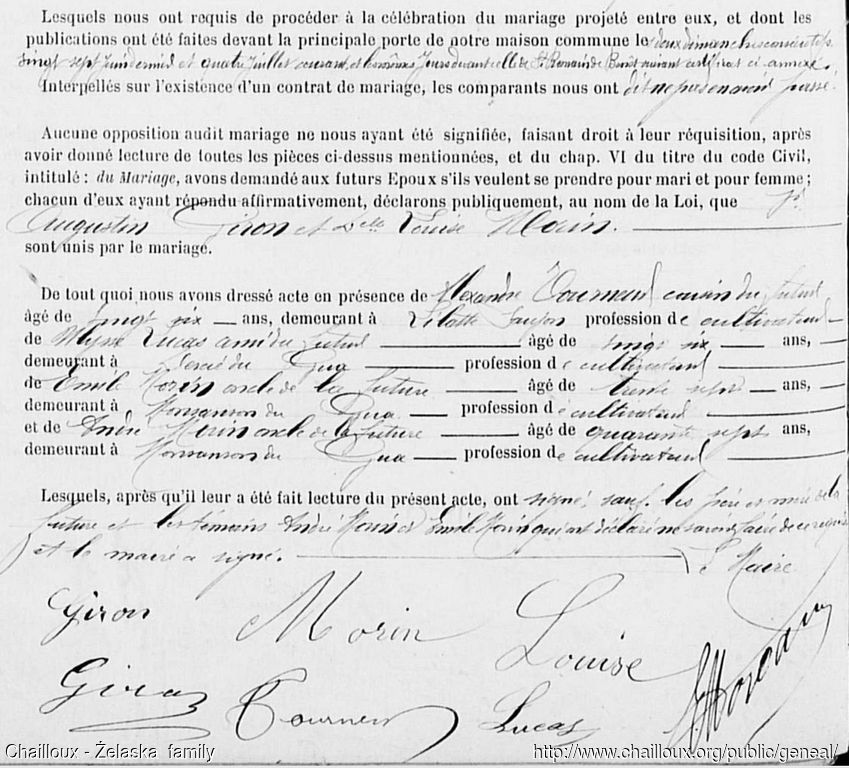 Lesquels nous ont requis de procéder à la célébration du mariage projeté entre eux, et dont les
publications ont été faites devant la principale porte de notre maison commune le deux dimanches consécutifs
vingt sept juin dernier et quatre juillet courant, et les mêmes jours devant celle de St Romain de Benet suivant certificat ci annexé.
Interpellés sur l'existence d'un contrat de mariage, les comparants nous ont dit ne pas en avoir passé.
Aucune opposition audit mariage ne nous ayant été signifiée, faisant droit à leur réquisition, après
avoir donné lecture de toutes les pièces ci-dessus mentionnées, et du chap. VI du titre du code Civil,
intitulé : du Mariage, avons demandé aux futurs Epoux s'ils veulent se prendre pour mari et pour femme ;
chacun d'eux ayant répondu affirmativement, déclarons publiquement, au nom de la Loi, que
Augustin Giron et Dlle Louise Morin.
sont unis par le mariage.
De tout quoi nous avons dressé acte en présence de Alexandre Tourneur cousin du futur
âgé de vingt six ans, demeurant à Saujon profession de cultivateur
de Ulysse Lucas ami du futur âgé de vingt six ans,
demeurant à du Gua profession de cultivateur
de Emile Morin oncle de la future âgé de trente sept ans,
demeurant à Monsanson du Gua profession de cultivateur
et de André Morin oncle de la future âgé de quarante sept ans,
demeurant à Monsanson du Gua profession de cultivateur
Lesquels, après qu'il leur a été fait lecture du présent acte, ont signé, sauf les père et mère de la
future et les témoins André Morin et Emile Morin qui ont déclaré ne savoir faire de ce requis
et le maire a signé. Le Maire
Giron Morin Louise
Giron Tourneur Lucas
Chailloux - Żelaska family http://www.chailloux.org/public/geneal/